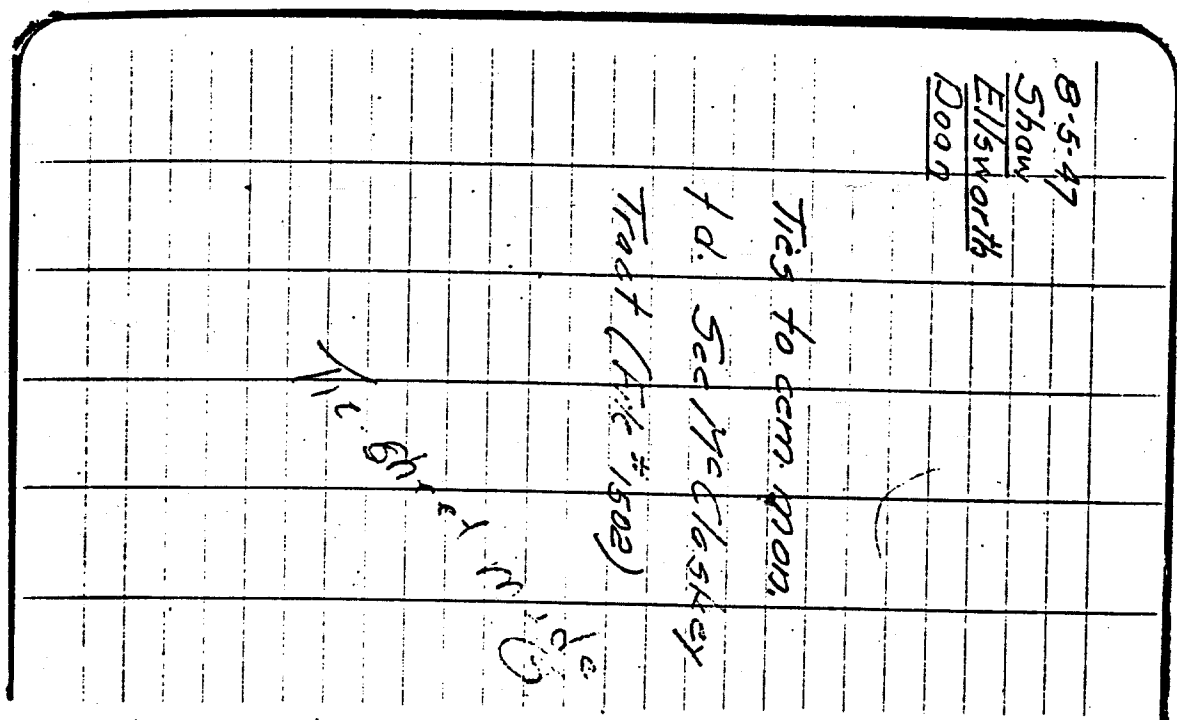 8-5-47
Shaw
Ellsworth
Doan
Ties to cem. mon.
fd. See McCloskey
Tract (File #1502)